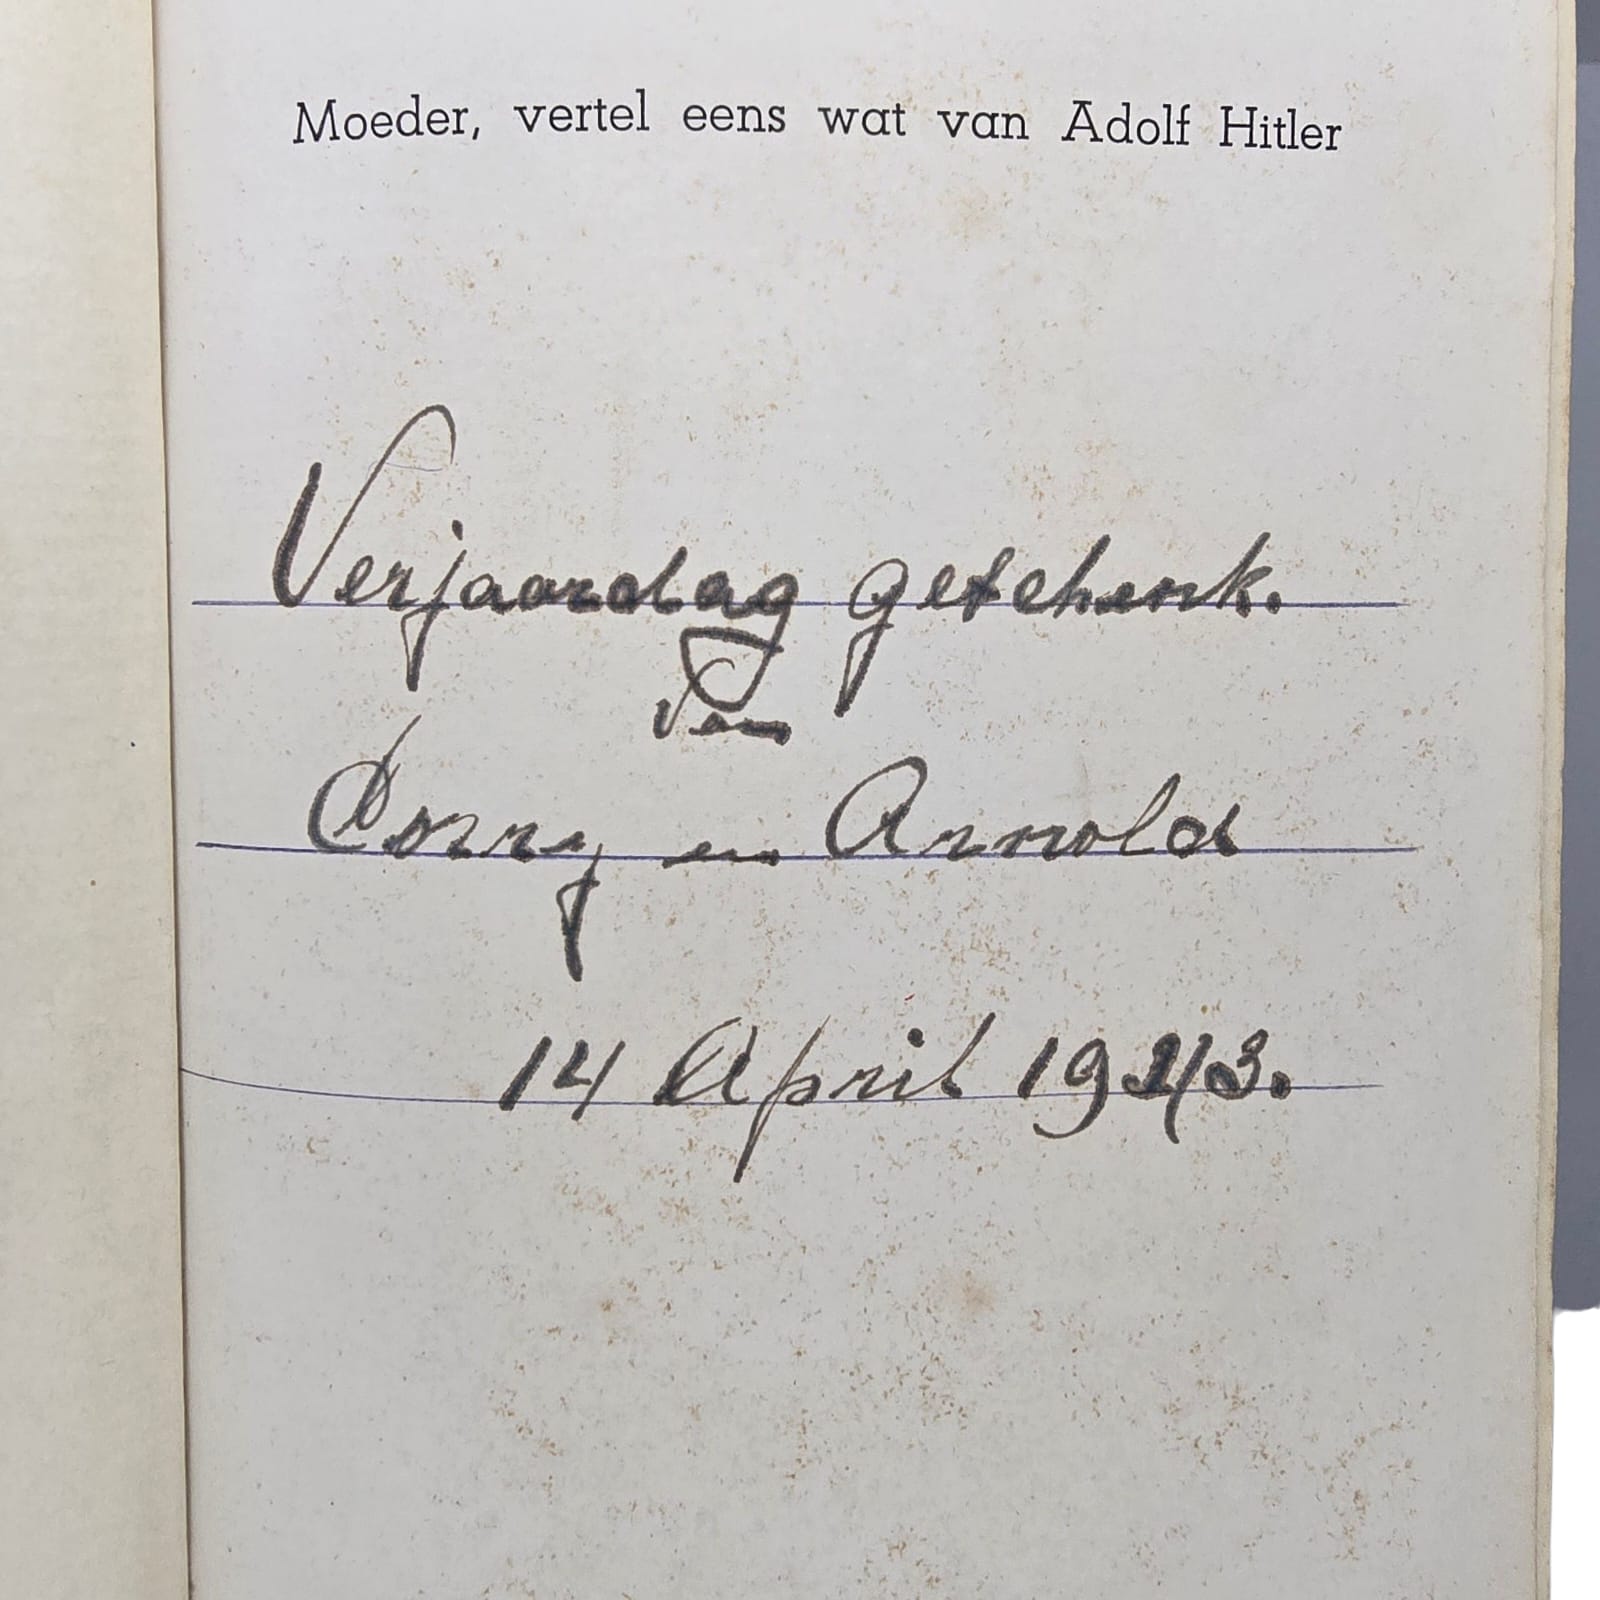 Moeder, vertel eens wat van Adolf Hitler
Verjaardag geschenk.
Van
Corry en Arnold
14 April 1943.